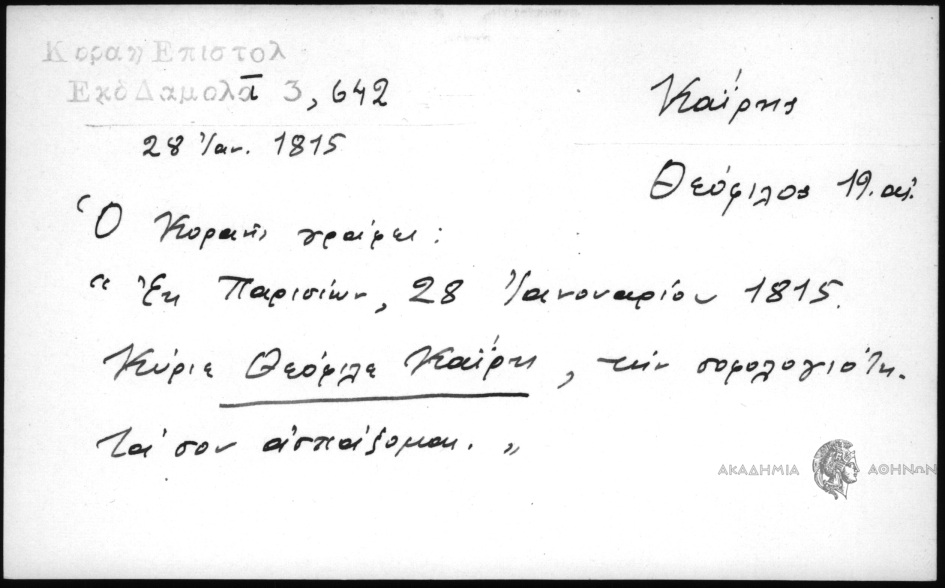 Κοραη Επιστολ
Εκδ Δαμαλα Ι 3, 642
28 Ἰαν. 1815
Καΐρης
Θεόφιλος 19. αἰ.
Ὁ Κοραῆς γράφει :
" Ἐκ Παρισίων, 28 Ἰανουαρίου 1815.
Κύριε Θεόφιλε Καΐρη, τήν σοφολογιότη-
τά σου ἀσπάζομαι. "
ΑΚΑΔΗΜΙΑ ΑΘΗΝΩΝ